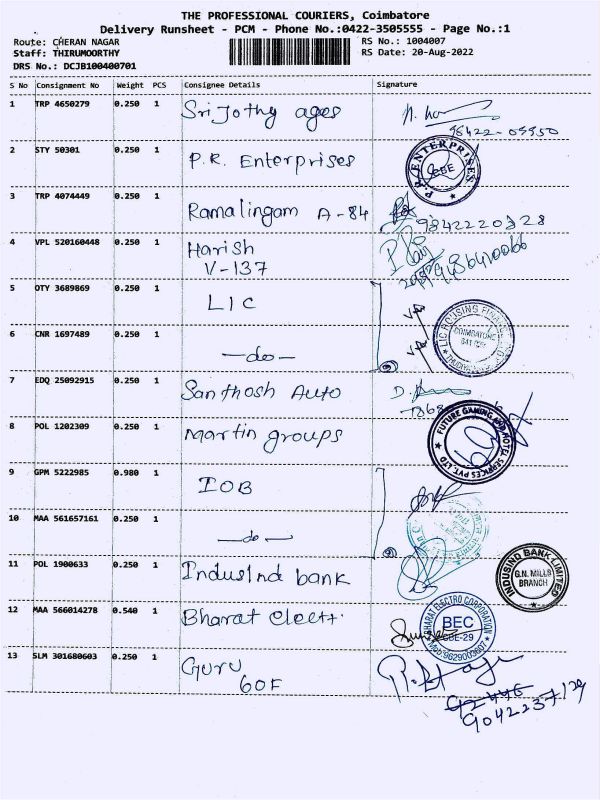 THE PROFESSIONAL COURIERS, Coimbatore
Delivery Runsheet - PCM - Phone No.:0422-3505555 - Page No.:1
Route: CHERAN NAGAR
RS No.: 1004007
Staff: THIRUMOORTHY
RS Date: 20-Aug-2022
DRS No.: DCJB100400701
S No Consignment No Weight PCS Consignee Details Signature
1 TRP 4650279 0.250 1 Sri Jothy ages
2 STY 50301 0.250 1 P.R. Enterprises
P.R. ENTERPRISES
CBE
3 TRP 4074449 0.250 1 Ramalingam A-84
4 VPL 520160448 0.250 1 Harish
V-137
5 OTY 3689869 0.250 1 LIC
LIC HOUSING FINANCE
COIMBATORE
6 CNR 1697489 0.250 1 -do-
7 EDQ 25092915 0.250 1 Santhosh Auto
8 POL 1202309 0.250 1 Martin groups
FUTURE GAMING AND HOTEL SERVICES PVT. LTD
9 GPM 5222985 0.980 1 IOB
10 MAA 561657161 0.250 1 -do-
11 POL 1900633 0.250 1 IndusInd bank
INDUSIND BANK LIMITED
G.N. MILLS
BRANCH
12 MAA 566014278 0.540 1 Bharat Elect.
BHARAT ELECTRO CORPORATION
BEC
CBE-29
13 SLM 301680603 0.250 1 Guru
60F